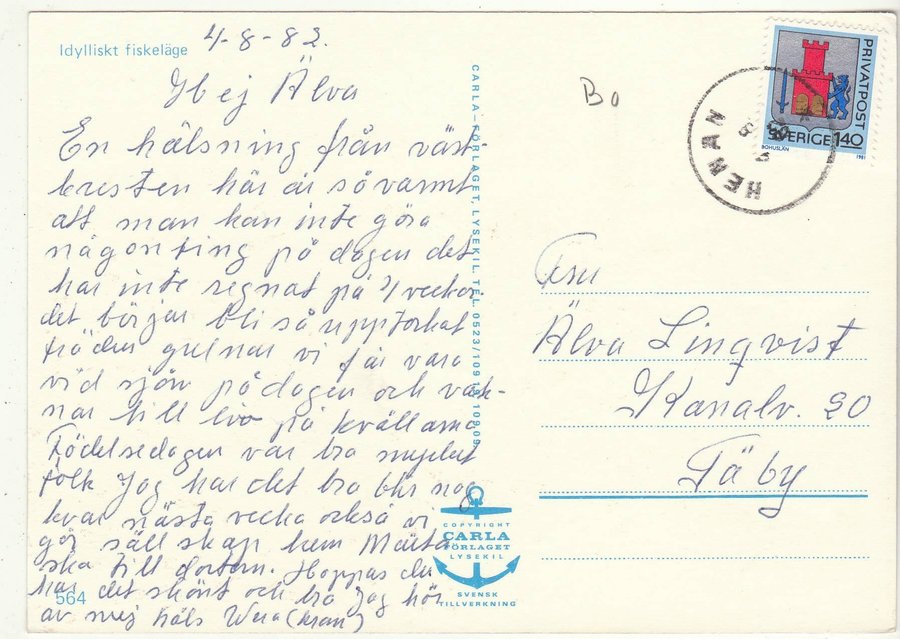 Idylliskt fiskeläge
4-8-82.
Hej Älva
En hälsning från väst
kusten här är så varmt
att man kan inte göra
någonting på dagen det
har inte regnat på veckor
det börjar bli så upptorkat
träden gulnar vi får vara
vid sjön på dagen och vak-
nar till liv på kvällarna
Födelsedagen var bra mycket
folk Jag har det bra blir nog
kvar nästa vecka också vi
gör sällskap hem Märta
ska till dortorn. Hoppas du
har det skönt och bra Jag hör
av mej Häls Wera (kram)
564
CARLA-FÖRLAGET, LYSEKIL. TEL. 0523/109
COPYRIGHT
CARLA
FÖRLAGET
LYSEKIL
SVENSK
TILLVERKNING
Bo
HENÅN
PRIVATPOST
SVERIGE 140
BOHUSLÄN
1981
Fru
Älva Linqvist
Kanalv. 20
Täby